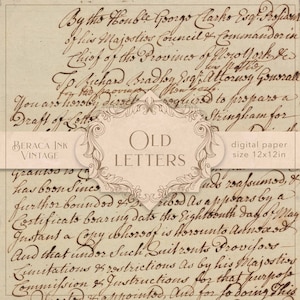 By the Honble George Clarke Esqr President
of his Majesties Council & Commander in
Chief of the Province of New York &c
To Richard Bradley Esqr Attorney Generall
You are hereby directed required to prepare a
Draft of Lette Stringham for
BERACA INK
VINTAGE
OLD
LETTERS
digital paper
size 12x12in
Granted to
has been since reassumed, &
further bounded & bed As appears by a
Certificate bearing date the Eighteenth day of May
Instant a Copy whereof is hereunto Annexed
And that under such Quitrents Provisors
Limitations & restrictions As by his Majesties
Commission & Instructions for that purpose
appointed, And for so doing This